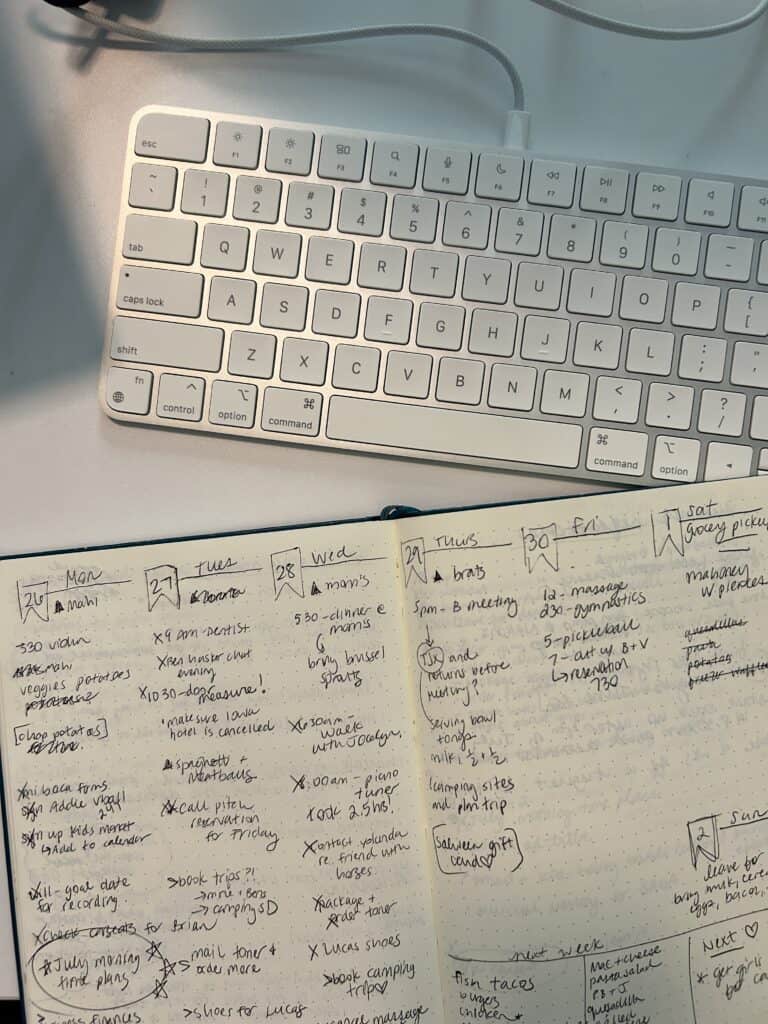 esc
F1
F2
F3
F4
F5
F6
F7
F8
F9
F10
F11
~ `
! 1
@ 2
# 3
$ 4
% 5
^ 6
& 7
* 8
( 9
) 0
— -
tab
Q W E R T Y U I O P { [
caps lock
A S D F G H J K L : ; " '
shift
Z X C V B N M < , > . ? /
fn
control
option
command
command
option
26 Mon
▲ mahi
330 violin
veggies potatoes
[chop potatoes]
sign Addie vball
sign up kids market
↳ Add to calendar
will - goal date
for recording
for Brian
* July morning
time plans
finances
27 Tues
X 9 am - dentist
evening
X 1030 - dog measure!
make sure Iowa
hotel is cancelled
▲ spaghetti +
meatballs
X call pitch
reservation
for Friday
> book trips ?!
→ mine + Bens
→ camping SD
> mail toner +
order more
> shoes for Lucas
28 Wed
▲ mom's
530 - dinner @
mom's
bring brussel
sprouts
X 630am -
walk
with Jocelyn
X 8:00am - piano
tuner
2.5 hs!
X contact Yolanda
re. friend with
horses
X package +
order toner
X Lucas shoes
> book camping
trip ♡
massage
29 Thurs
▲ brats
5pm - B meeting
TJX and
returns before
meeting?
serving bowl
tongs
milk, ½ + ½
camping sites
and plan trip
gift
card ♡
30 Fri
12 - massage
230 - gymnastics
5 - pickleball
7 - out w/ B + V
↳ reservation
730
1 Sat
grocery pickup
mahoney
w pierces
quesadillas
pasta
potatoes
freezer waffles
2 Sun
leave for
bring milk,
eggs, bacon,
next week
fish tacos
burgers
chicken *
mac + cheese
pasta salad
PB + J
quesadilla
Next ♡
* get girls